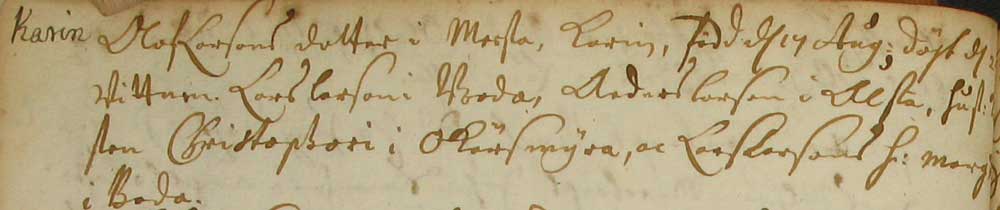 Karin Olof Larsons dotter i Mersta, Karin, född d 17 Aug: döpt d
Vittnen. Lars larson i Boda, Anders larson i Alsta, hust:
sten Christophori i Kärsmyra, oc Lars Larsons h: Marg
i Boda.